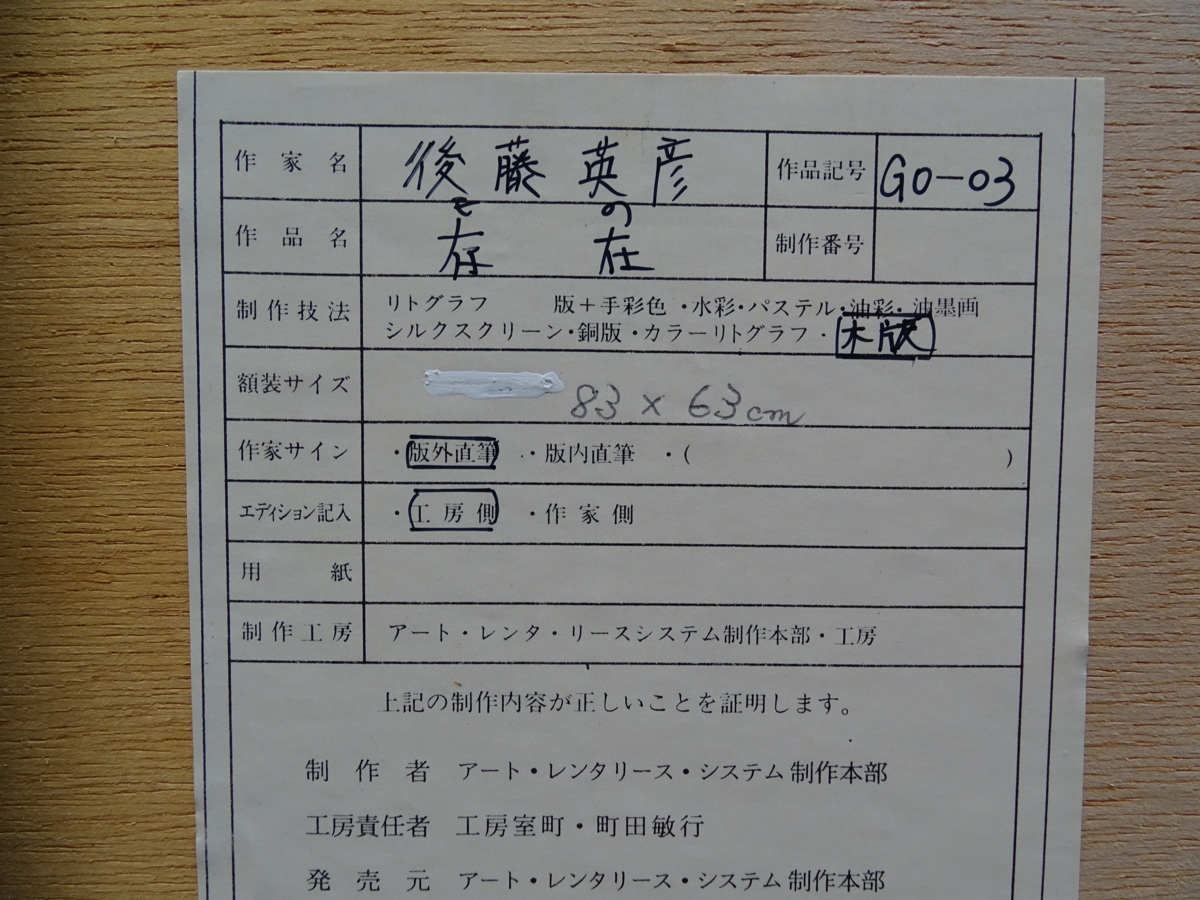 作家名 後藤英彦 作品記号 GO-03
その
作品名 存在 制作番号
制作技法 リトグラフ 版+手彩色・水彩・パステル・油彩・油墨画
シルクスクリーン・銅版・カラーリトグラフ・木版
額装サイズ 83×63cm
作家サイン ・版外直筆 ・版内直筆 ・( )
エディション記入 ・工房側 ・作家側
用紙
制作工房 アート・レンタ・リースシステム制作本部・工房
上記の制作内容が正しいことを証明します。
制作者 アート・レンタリース・システム制作本部
工房責任者 工房室町・町田敏行
発売元 アート・レンタリース・システム制作本部